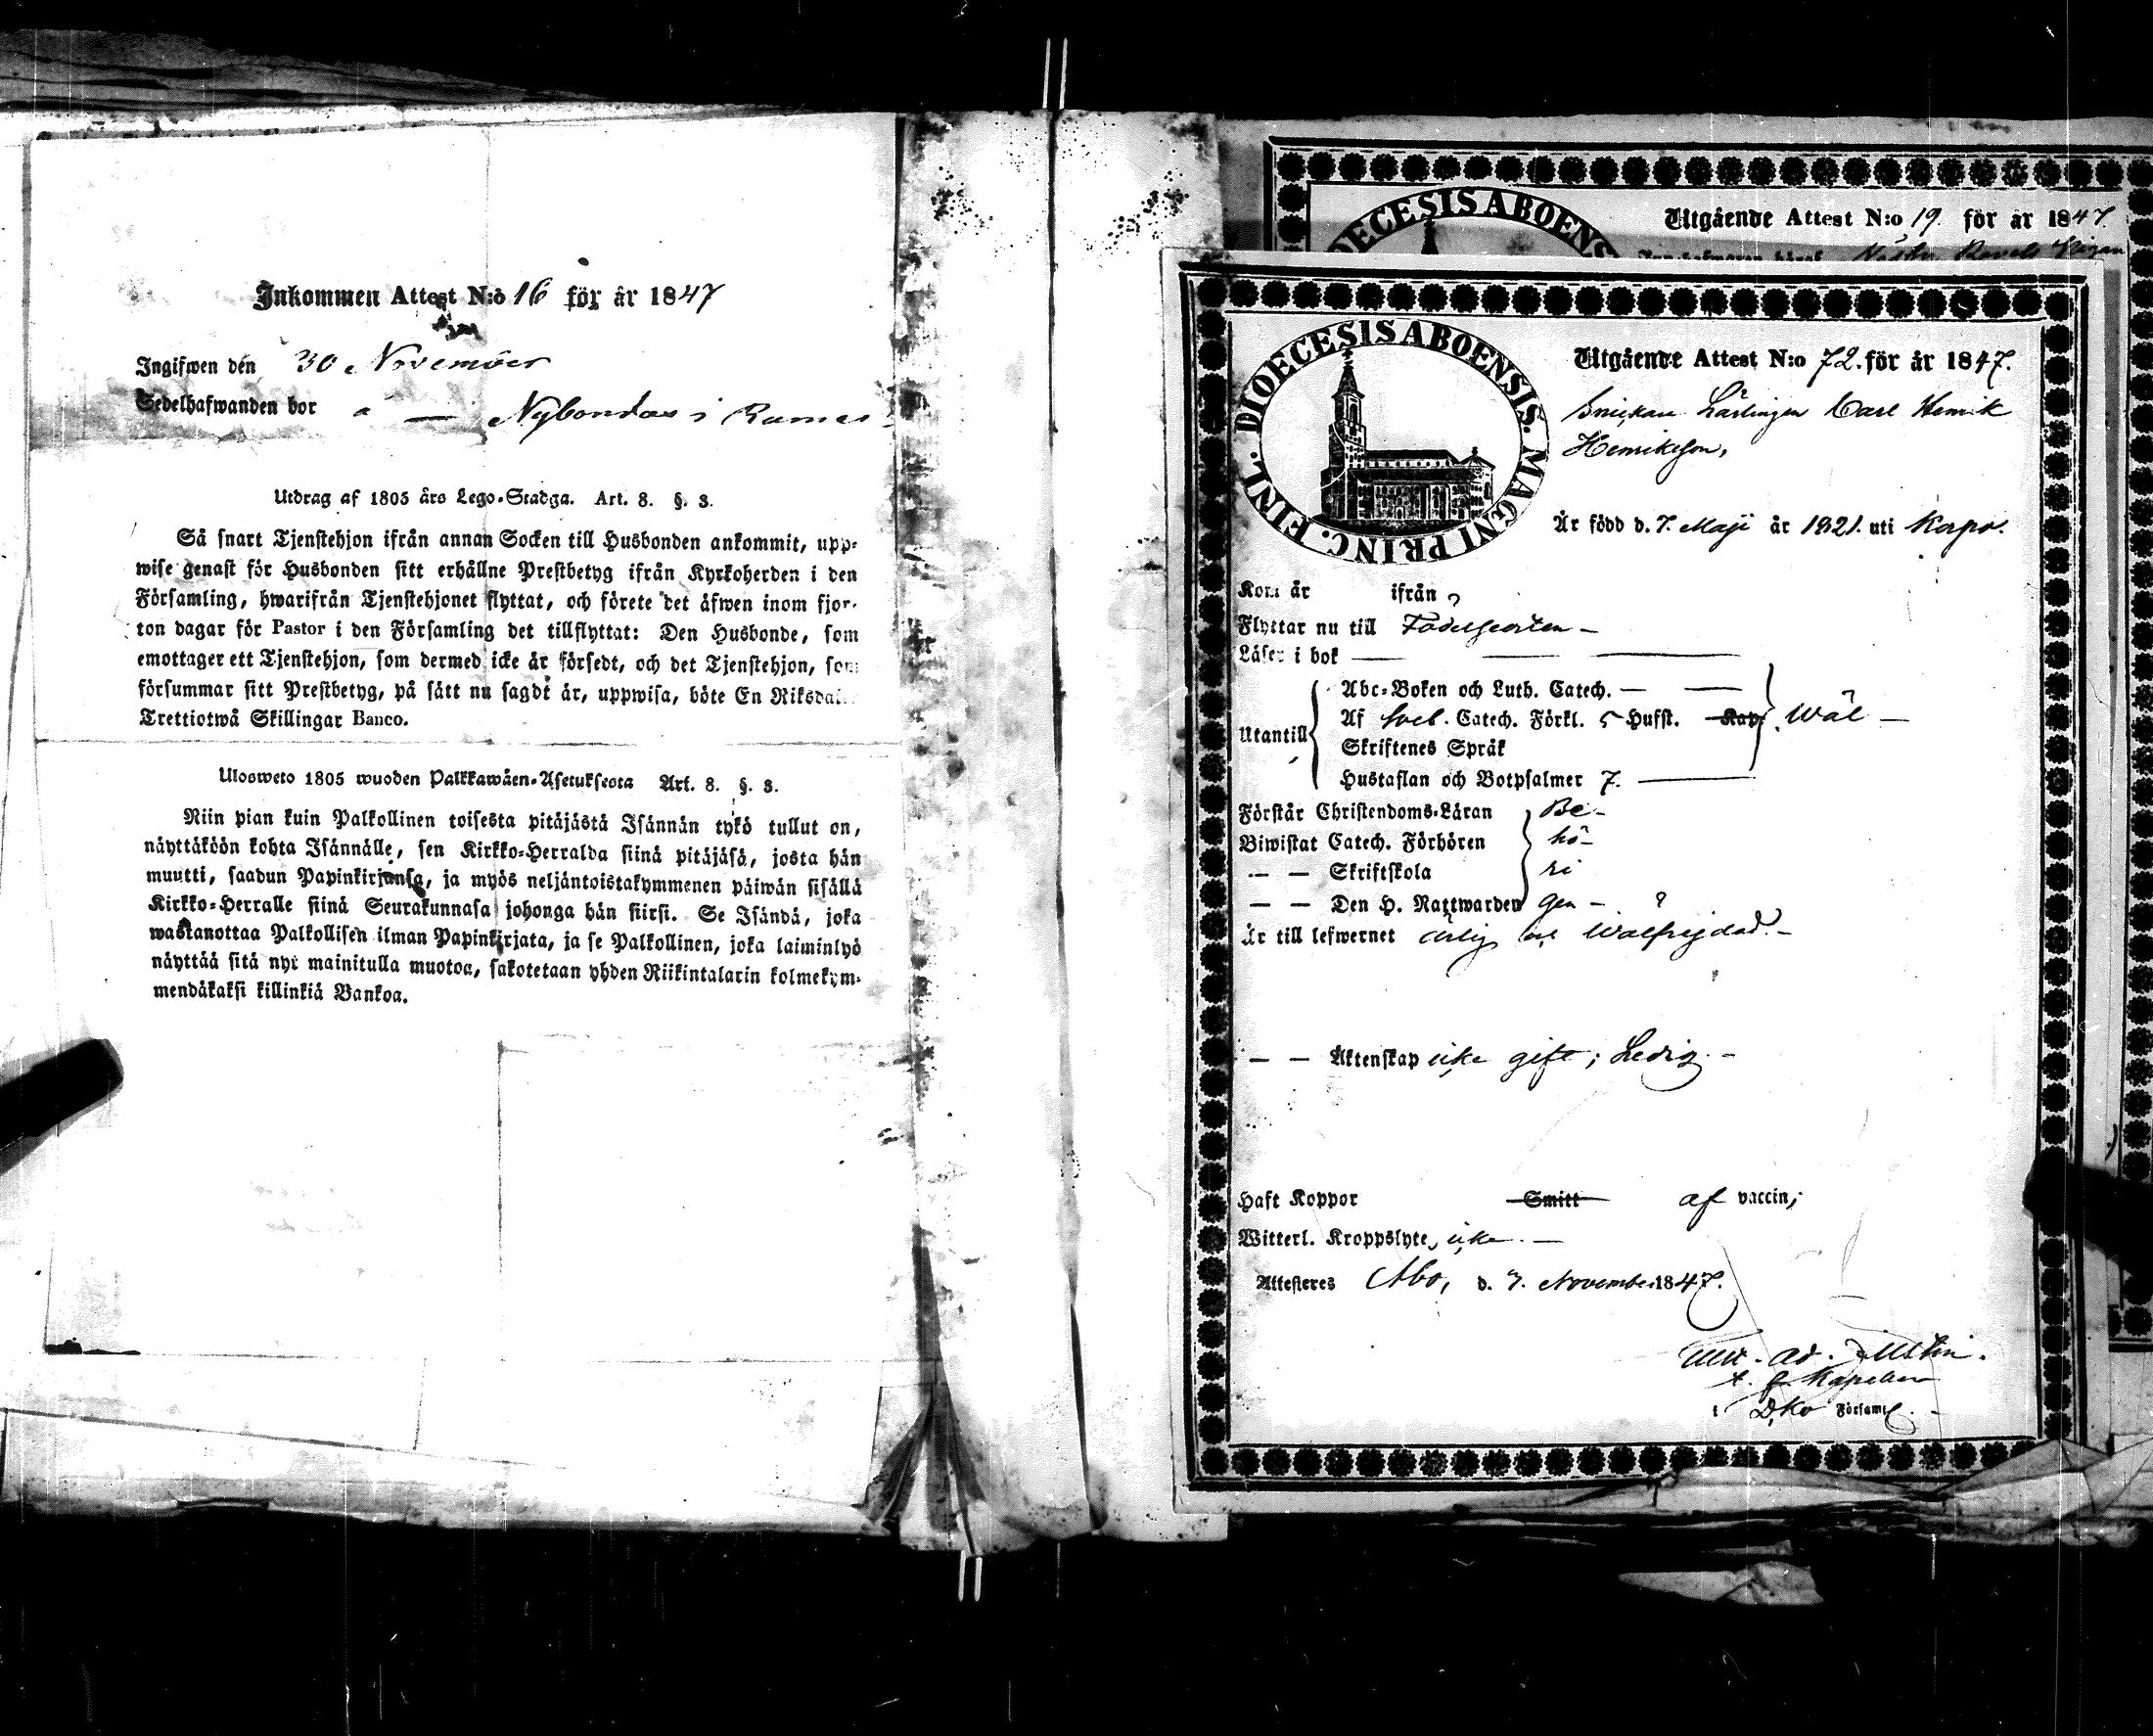 Inkommen Attest N:o 16 för år 1847
Ingifwen den 30 November
Sedelhafwanden bor å — Nybondas i Rumar
Utdrag af 1805 års Lego-Stadga. Art. 8. §. 3.
Så snart Tjenstehjon ifrån annan Socken till Husbonden ankommit, upp-
wise genast för Husbonden sitt erhållne Prestbetyg ifrån Kyrkoherden i den
Församling, hwarifrån Tjenstehjonet flyttat, och förete det äfwen inom fjor-
ton dagar för Pastor i den Församling det tillflyttat: Den Husbonde, som
emottager ett Tjenstehjon, som dermed icke är försedt, och det Tjenstehjon, som
försummar sitt Prestbetyg, på sätt nu sagdt är, uppwisa, böte En Riksdaler
Trettiotwå Skillingar Banco.
Ulosweto 1805 wuoden Palkkawäen-Asetuksesta Art. 8. §. 3.
Niin pian kuin Palkollinen toisesta pitäjästä Isännän tykö tullut on,
näyttäköön kohta Isännälle, sen Kirkko-Herralda siinä pitäjäsä, josta hän
muutti, saadun Papinkirjansa, ja myös neljäntoistakymmenen päiwän sisällä
Kirkko-Herralle siinä Seurakunnasa johonga hän siirsi. Se Isändä, joka
wastanottaa Palkollisen ilman Papinkirjata, ja se Palkollinen, joka laiminlyö
näyttää sitä nyt mainitulla muotoa, sakotetaan yhden Riikintalarin kolmekym-
mendäkaksi killinkiä Bankoa.
Utgående Attest N:o 19. för år 1847.
DIOECESIS ABOENS
DIOECESIS ABOENSIS. MAGNI PRINC. FINL.
Utgående Attest N:o 72. för år 1847.
Snickare Lärlingen Carl Henrik
Henriksson,
Är född d. 7. Maji år 1821. uti Korpo.
Kom år ifrån
Flyttar nu till Födelseorten –
Läser i bok — — —
Utantill
Abc-Boken och Luth. Catech. — —
Af Sveb. Catech. Förkl. 5 Hufst. Kap. Wäl —
Skriftenes Språk
Hustaflan och Botpsalmer 7. —
Förstår Christendoms-Läran Be-
Biwistat Catech. Förhören hö-
— — Skriftskola ri
— — Den H. Nattwarden gen –
Är till lefwernet ärlig och wälfrejdad. –
— — Äktenskap icke gift; Ledig. –
Haft Koppor Smitt af vaccin;
Witterl. Kroppslyte, icke. —
Attesteres Åbo, d. 7. November 1847.
i D:ko Församl.